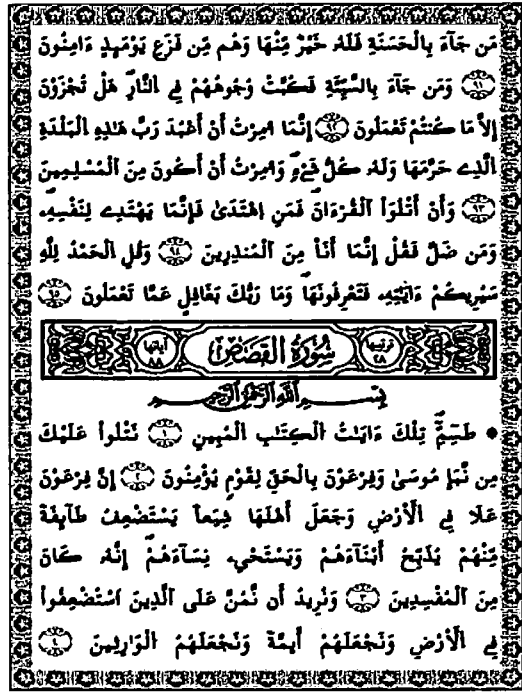 مَن جَآءَ بِالْحَسَنَةِ فَلَهُۥ خَيْرٌ مِّنْهَا وَهُم مِّن فَزَعِ يَوْمَئِذٍ ءَامِنُونَ
٩١ وَمَن جَآءَ بِالسَّيِّئَةِ فَكُبَّتْ وُجُوهُهُمْ فِے النَّارِ هَلْ تُجْزَوْنَ
إِلَّا مَا كُنتُمْ تَعْمَلُونَ ٩٢ إِنَّمَآ أُمِرْتُ أَنْ أَعْبُدَ رَبَّ هَٰذِهِ الْبَلْدَةِ
الَّذِے حَرَّمَهَا وَلَهُۥ كُلُّ شَےْءٍ وَأُمِرْتُ أَنْ أَكُونَ مِنَ الْمُسْلِمِينَ
٩٣ وَأَنْ أَتْلُوَا۟ الْقُرْءَانَ فَمَنِ اهْتَدَىٰ فَإِنَّمَا يَهْتَدِے لِنَفْسِهِۦ
وَمَن ضَلَّ فَقُلْ إِنَّمَآ أَنَا۠ مِنَ الْمُنذِرِينَ ٩٤ وَقُلِ الْحَمْدُ لِلهِ
سَيُرِيكُمْ ءَايَٰتِهِۦ فَتَعْرِفُونَهَا وَمَا رَبُّكَ بِغَٰفِلٍ عَمَّا تَعْمَلُونَ ٩٥
ترتيبها ٢٨ سُورَةُ القَصَصِ آياتها ٨٨
بِسْمِ اللهِ الرَّحْمَٰنِ الرَّحِيمِ
طَسِٓمِّٓ تِلْكَ ءَايَٰتُ الْكِتَٰبِ الْمُبِينِ ١ نَتْلُوا۟ عَلَيْكَ
مِن نَّبَإِ مُوسَىٰ وَفِرْعَوْنَ بِالْحَقِّ لِقَوْمٍ يُؤْمِنُونَ ٢ إِنَّ فِرْعَوْنَ
عَلَا فِے الْأَرْضِ وَجَعَلَ أَهْلَهَا شِيَعاً يَسْتَضْعِفُ طَآئِفَةً
مِّنْهُمْ يُذَبِّحُ أَبْنَآءَهُمْ وَيَسْتَحْيِۦ نِسَآءَهُمْ إِنَّهُۥ كَانَ
مِنَ الْمُفْسِدِينَ ٣ وَنُرِيدُ أَن نَّمُنَّ عَلَى الَّذِينَ اسْتُضْعِفُوا۟
فِے الْأَرْضِ وَنَجْعَلَهُمْ أَئِمَّةً وَنَجْعَلَهُمُ الْوَٰرِثِينَ ٤